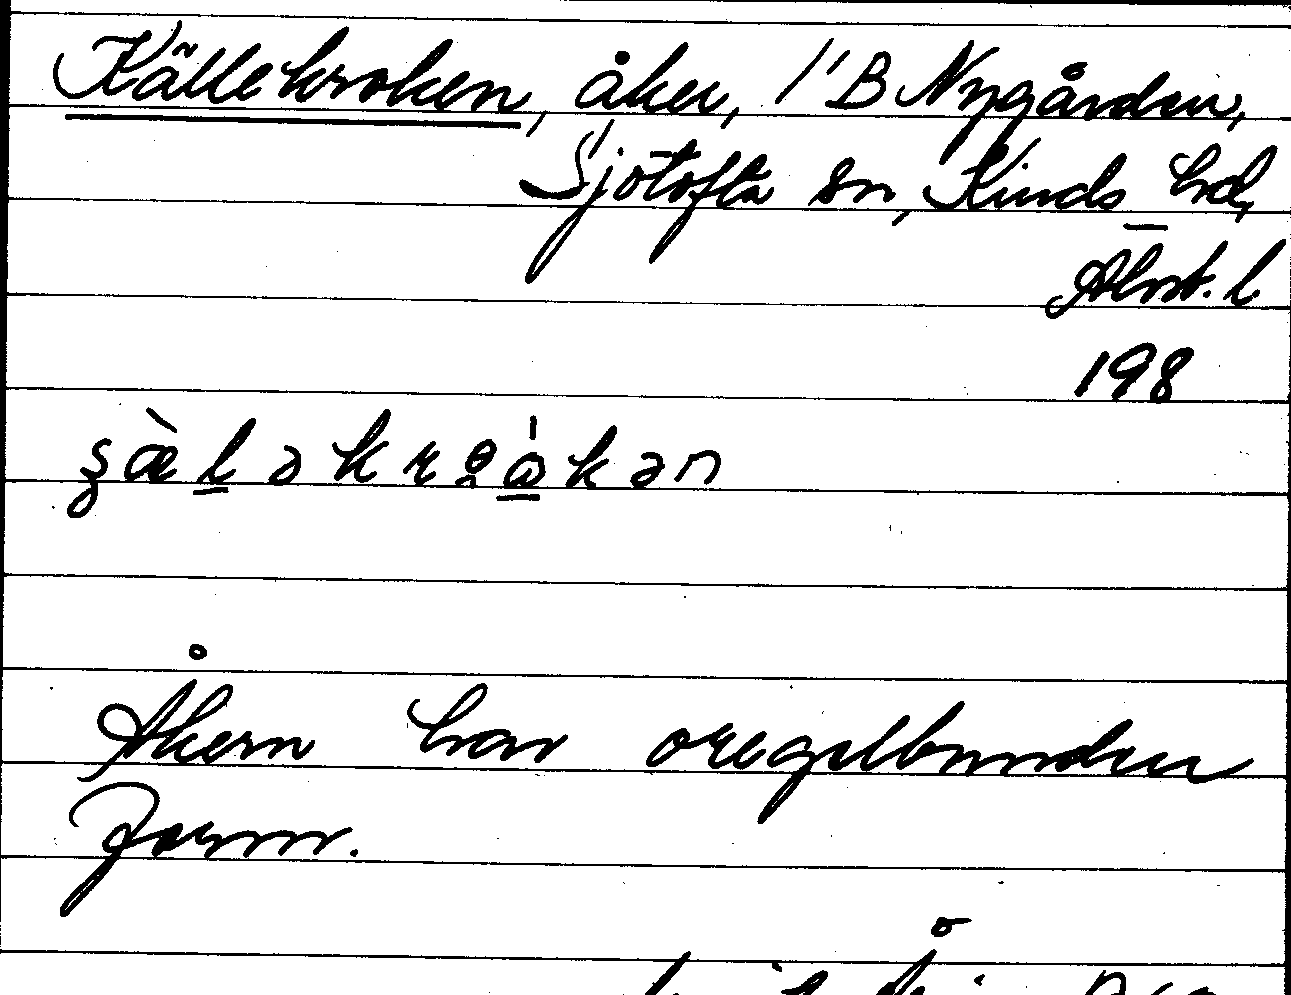 Källekroken, åker, 1/1 B Nygården,
Sjötofta sn, Kinds hd,
Älvsb. l
198
Åkern har oregelbunden
form.